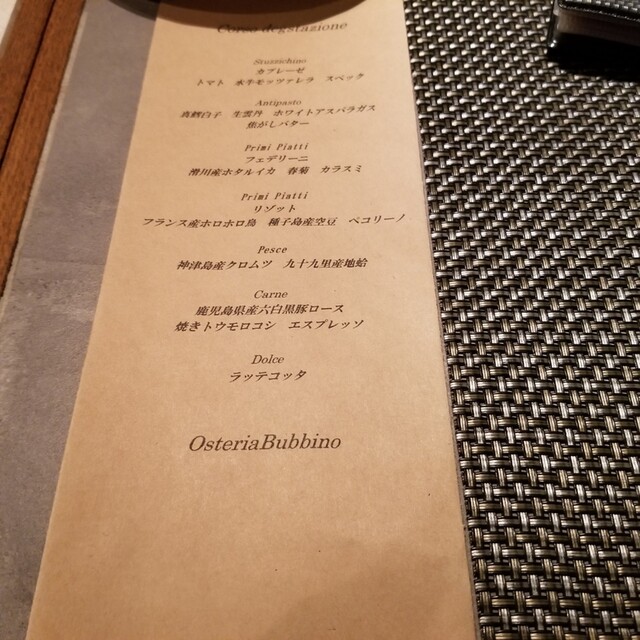 Corso degstazione
Stuzzichino
カプレーゼ
トマト 水牛モッツァレラ スペック
Antipasto
真鱈白子 生雲丹 ホワイトアスパラガス
焦がしバター
Primi Piatti
フェデリーニ
滑川産ホタルイカ 春菊 カラスミ
Primi Piatti
リゾット
フランス産ホロホロ鳥 種子島産空豆 ペコリーノ
Pesce
神津島産クロムツ 九十九里産地蛤
Carne
鹿児島県産六白黒豚ロース
焼きトウモロコシ エスプレッソ
Dolce
ラッテコッタ
OsteriaBubbino